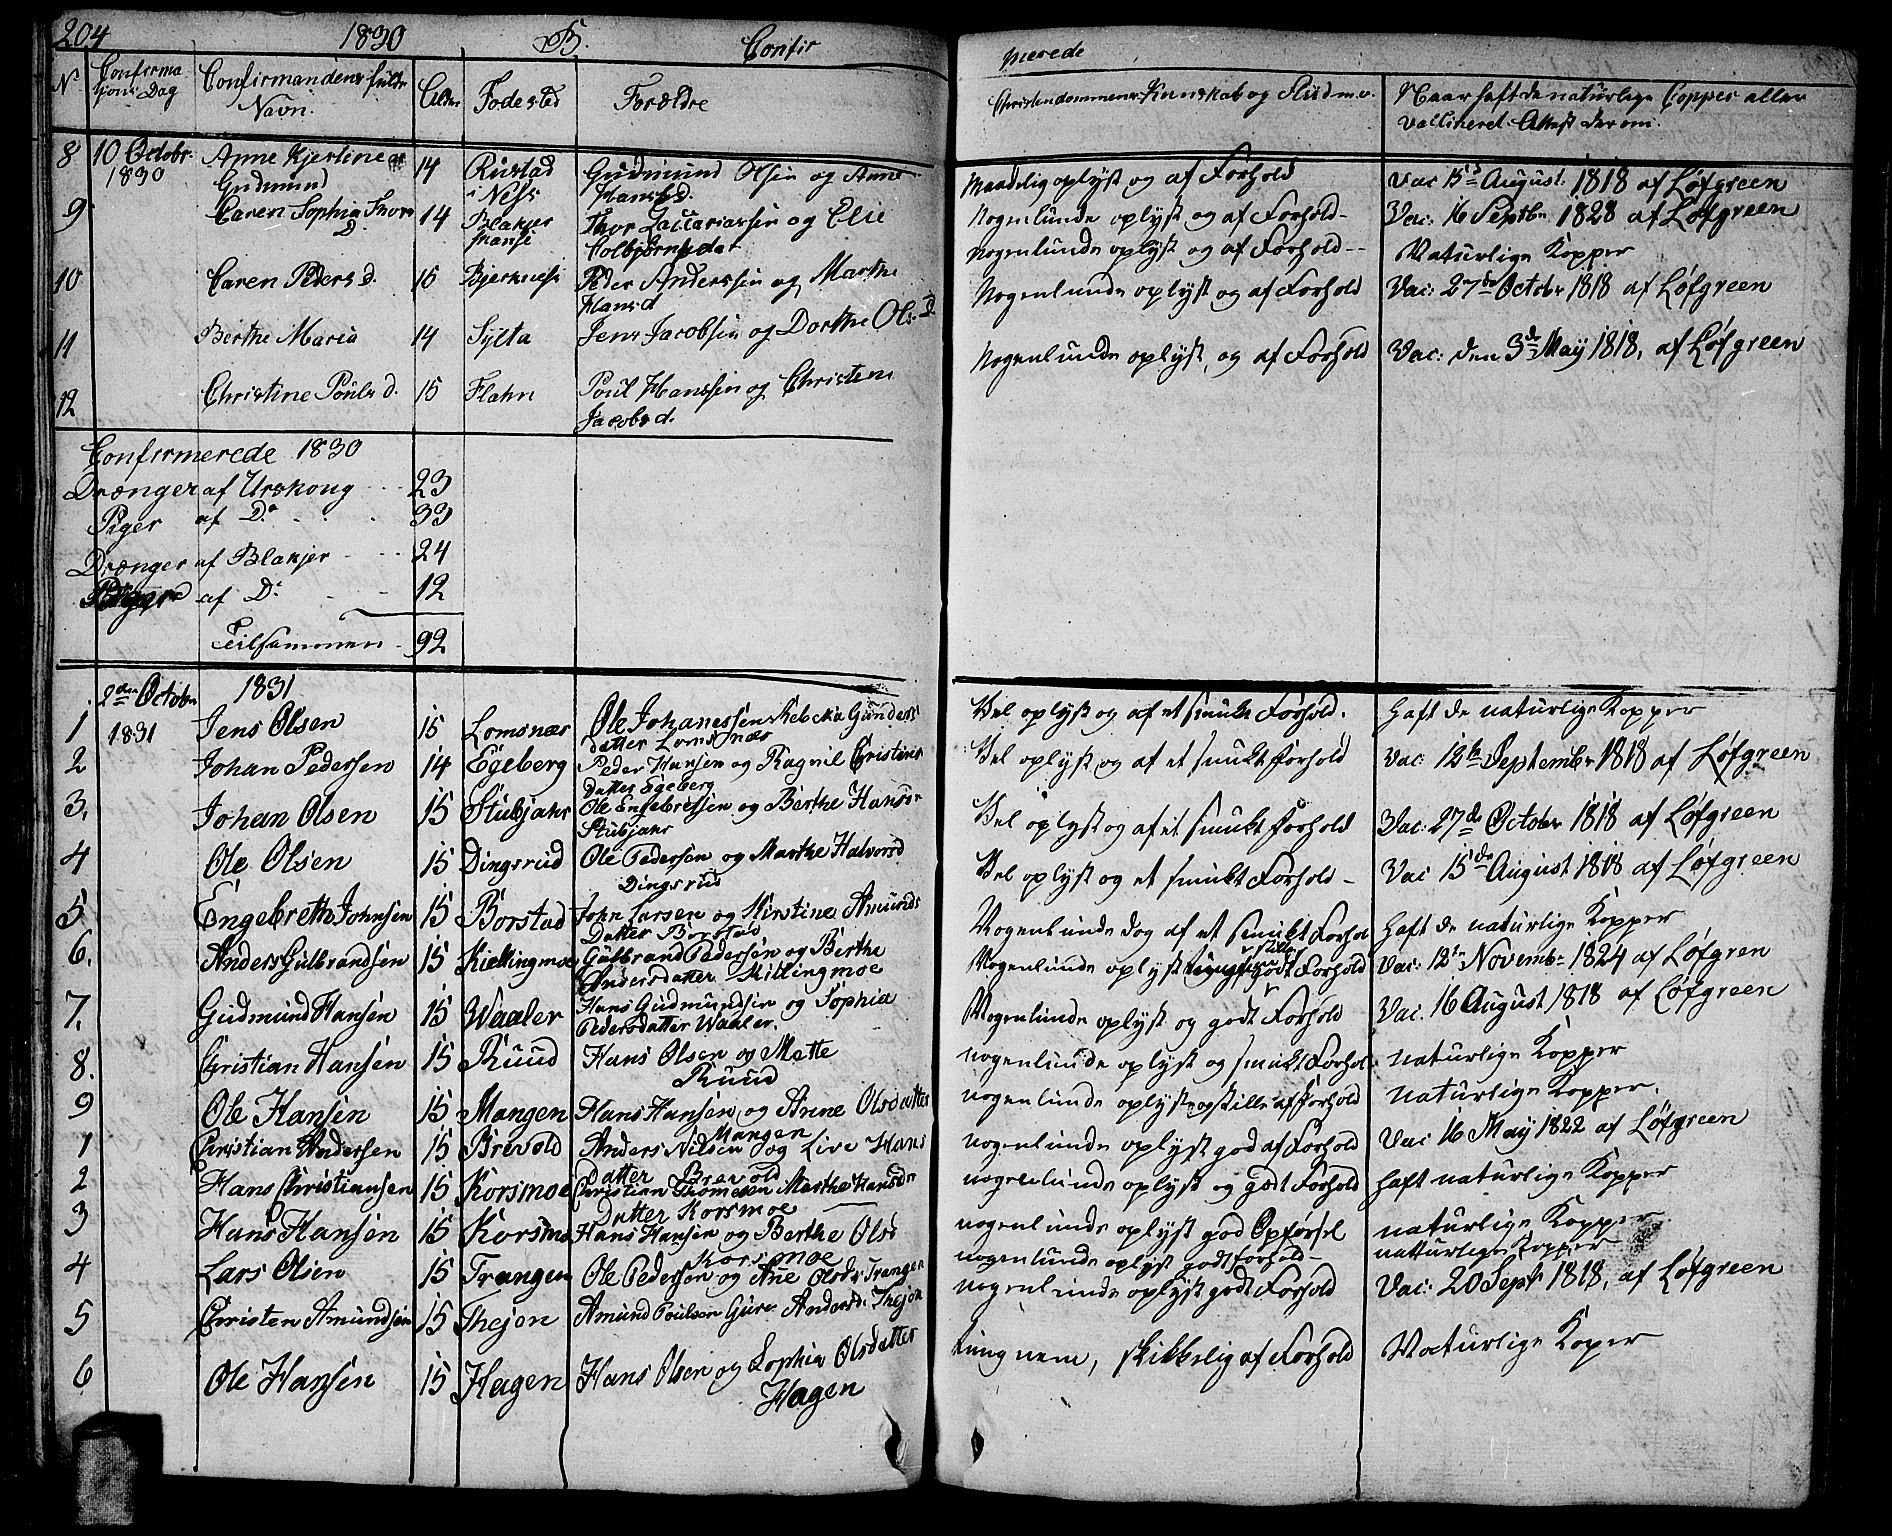 204 1830 B. Confir
merede
N Confirmations Dag Confirmandens fulde Navn. Alder Fødested Forældre
Christendommens Kunskab og Flid m.v. Naar haft de naturlige Copper eller vaccineret Attest derom.
8 10 Octobr. 1830 Anne Kjerstine Gudmund 14 Rustad i Ness Gudmund Olsen og Anne Hansd.
Maadelig oplyst og af Forhold Vac 15 August 1818 af Løfgreen
9 Caren Sophia Thors D. 14 Blakjer Thor Zacariassen og Elie Colbjørnsdat
Nogenlunde oplyst og af Forhold- Vac: 16 Septbr 1828 af Løfgreen
Nogenlunde oplyst og af Forhold-- Naturlige Kopper
10 Caren Peders D. 15 Bjerknes Peder Anderssen og Marthe Hansd
Nogenlunde oplyst og af Forhold Vac: 27de Octobr 1818 af Løfgreen
11 Berthe Maria 14 Sylta Jens Jacobsen og Dorthe Ols D.
Nogenlunde oplyst, og af Forhold Vac: den 3de May 1818, af Løfgreen
12 Christine Pouls d. 15 Flahn Poul Hanssen og Christine Jacobsd.
Confirmerede 1830
Drænger af Urskoug 23
Piger af Do 33
Drænger af Blakjer 24
Piger af Do 12
Tilsammen 92
2den Octobr 1831
1 1831 Jens Olsen 15 Lomsnær Ole Johanessen Rebeka Gunders datter Lomsnær
Vel oplyst og af et smukt Forhold. haft de naturlige Kopper
2 Johan Pedersen 14 Egeberg Peder Hansen og Ragnil Christines Datter Egeberg
Vel oplyst og af et smukt Forhold Vac: 12te September 1818 af Løfgreen
3. Johan Olsen 15 Stubjahr Ole Engebretsen og Berthe Hansdr Stubjahr
Vel oplyst og af et smukt Forhold Vac: 27de October 1818 af Løfgreen
4 Ole Olsen 15 Dingsrud Ole Pedersen og Marthe Halvorsd Dingsrud
Vel oplyst og et smukt Forhold - Vac 15de August 1818 af Løfgreen
5 Engebreth Johnsen 15 Borstad John Larsen og Kirstine Amunds Datter Borstad
Nogenlunde og af et smukt Forhol haft de naturlige Kopper
6. Anders Gulbrandsen 15 Kiellingmoe Gulbrand Pedersen og Berthe Andersdatter Killingmoe
Nogenlunde oplyst godt Forhold Vac: 12te Novembr 1824 af Løfgren
7. Gudmund Hansen 15 Waaler Hans Gudmundsen og Sophia Pedersdatter Waaler.
Nogenlunde oplyst og godt Forhold Vac. 16 August 1818 af Løfgreen
8. Christian Hansen 15 Ruud Hans Olsen og Mette Ruud
nogenlunde oplyst og smukt Forhol naturlige Kopper
9 Ole Hansen 15 Mangen Hans Hansen og Anne Olsdatter Mangen
nogenlunde oplyst og stille af Forhold naturlige Kopper.
1 Christian Andersen 15 Brevold Anders Nilsen og Live Hans Datter Brevold
nogenlunde oplyst god af Forhold Vac 16 May 1822 af Løfgreen
2 Hans Christiansen 15 Korsmoe Christian Thomesen Marthe Hansdr datter Korsmoe
nogenlunde oplyst og godt Forhold haft naturlige Kopper
3 Hans Hansen 15 Korsmo Hans Hansen og Berthe Ols Korsmoe
nogenlunde oplyst god Opførsel naturlige Kopper
nogenlunde oplyst godt forhold- natturlige Kopper
4 Lars Olsen 15 Trangen Ole Pedersen og Ane Olsdr Trangen
nogenlunde oplyst godt Forhold Vac: 20 Sept 1818, af Løfgreen
5 Christen Amundsen 15 Thejen Amund Poulsen Gure Andersdr Thejen
6 Ole Hansen 15 Hagen Hans Olsen og Sophia Olsdatter Hagen
tung nem, skikkelig af Forhold Naturlige Koper